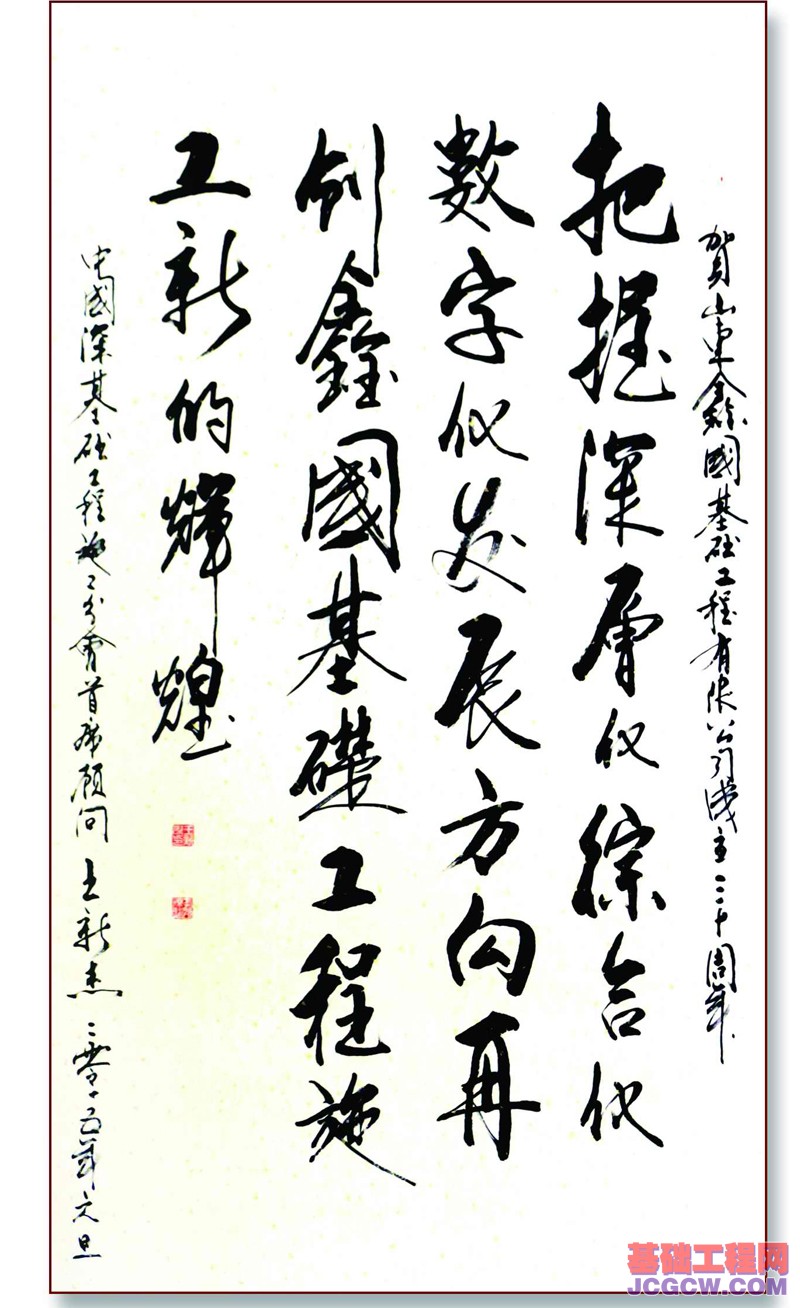 贺山東鑫國基础工程有限公司成立二十周年
把握深層化綜合化
數字化发展方向再
創鑫國基礎工程施
工新的輝煌
中國深基础工程施工分會首席顾问 王新杰 二零一五年元旦
基础工程网
JCGCW.COM